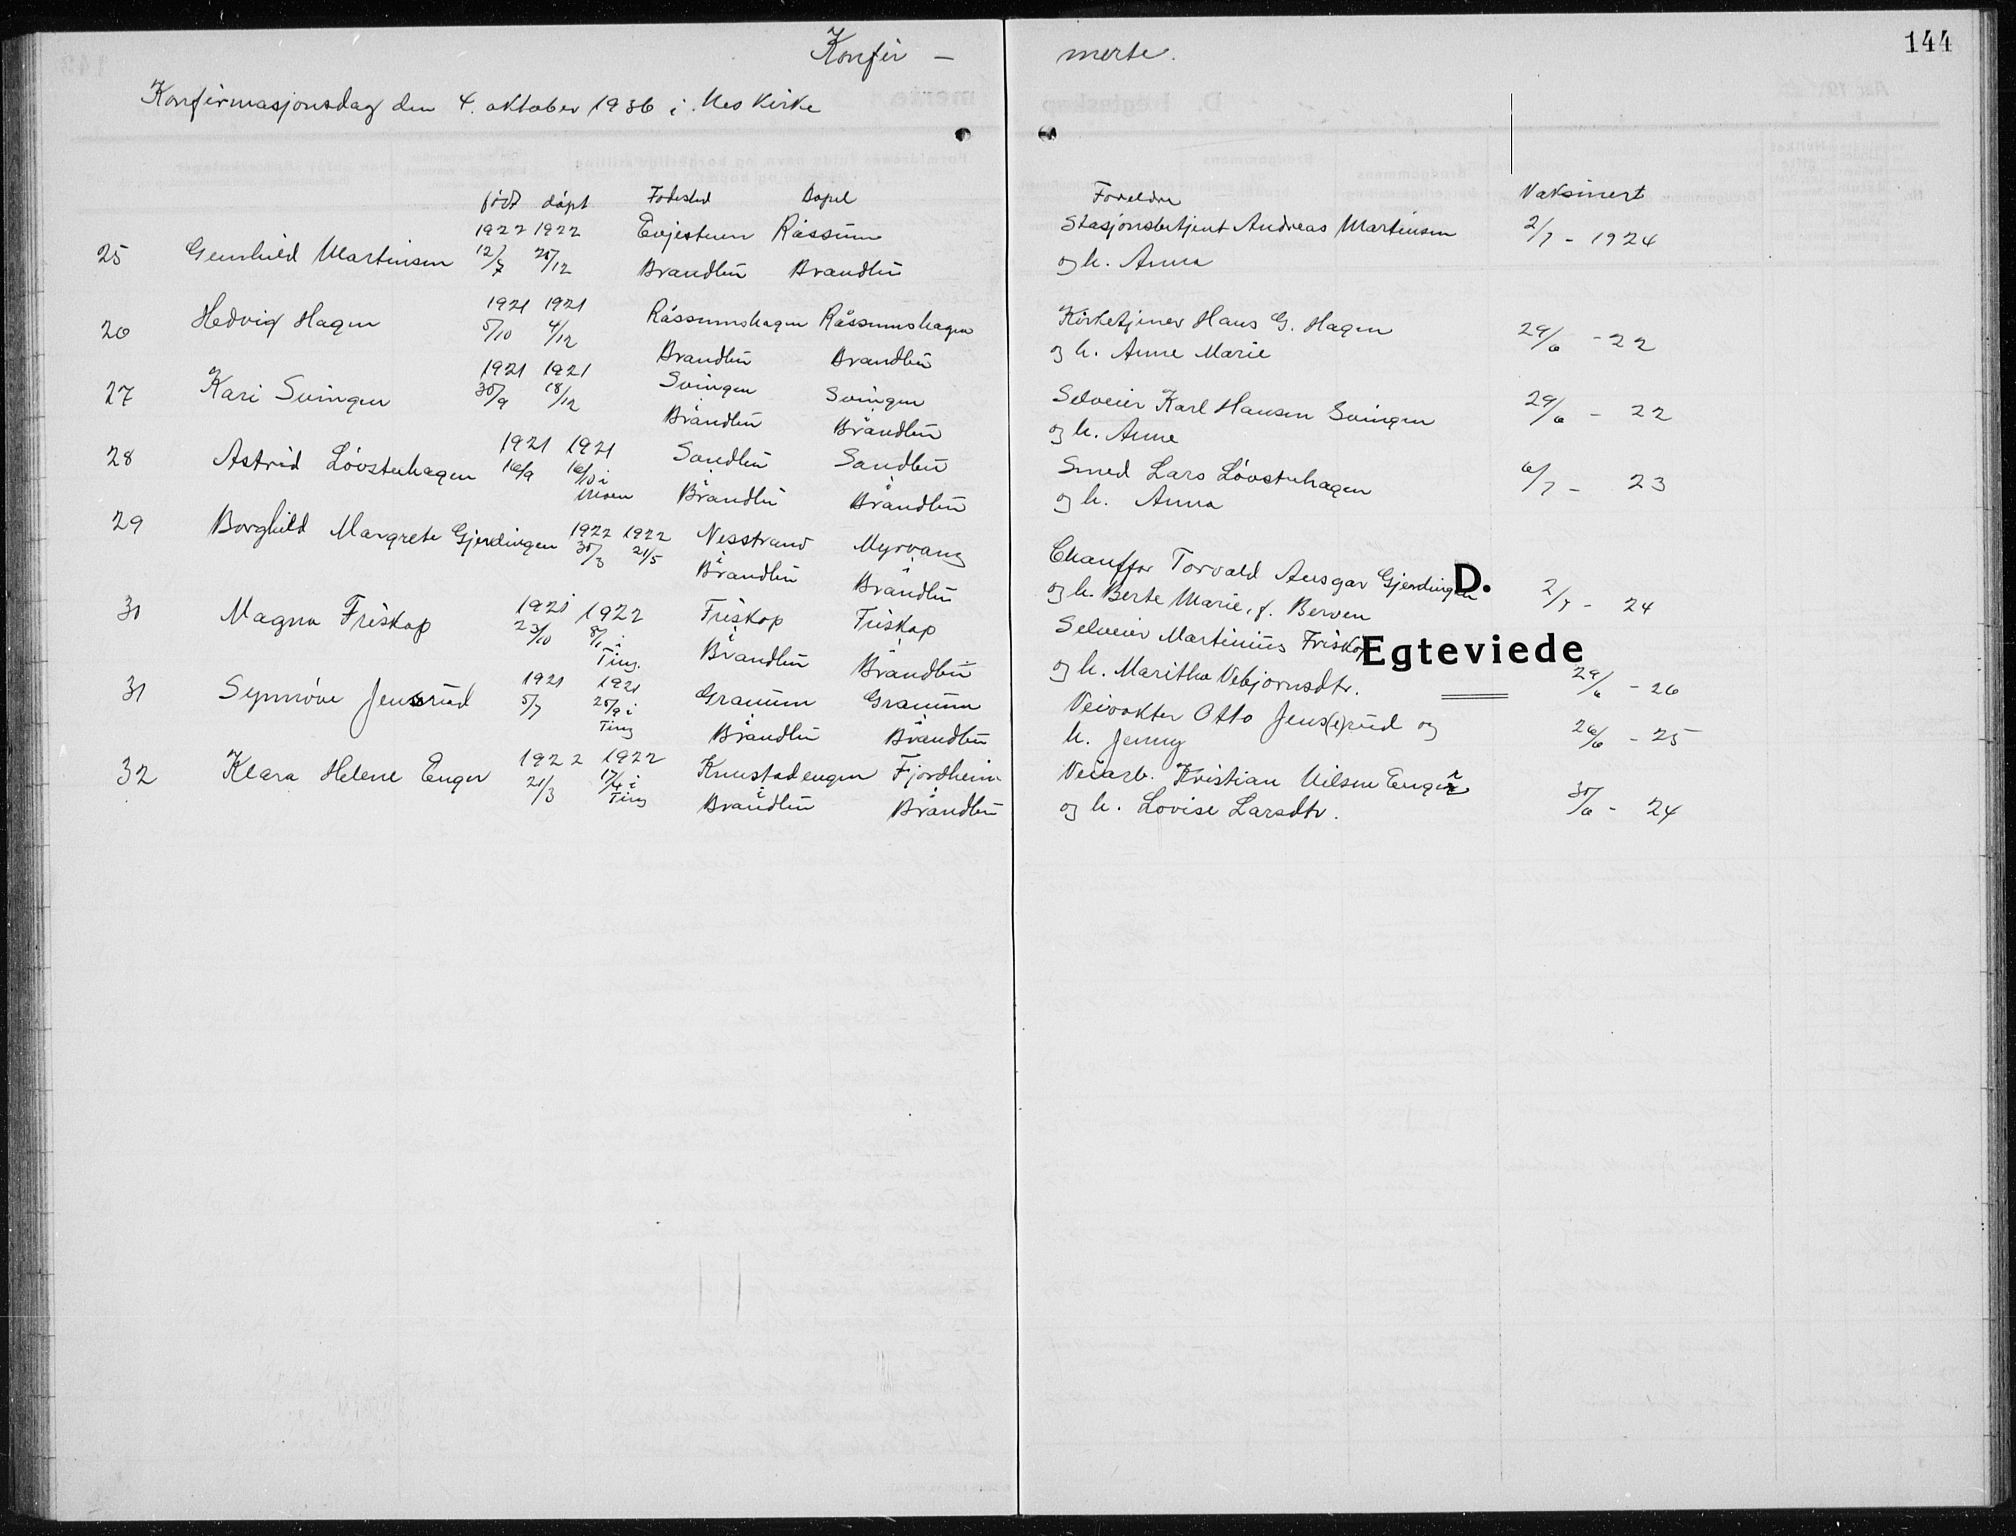 144
Konfir - merte.
Konfirmasjonsdag den 4. oktober 1936 i Nes Kirke
født døpt Fødested Bopel Foreldre Vaksinert
1922 1922 Evjestuen Råssum Stasjonsbetjent Andreas Martinsen 2/7 - 1924
25 Gunhild Martinsen 12/7 25/12 Brandbu Brandbu og h. Anna
1921 1921 Råssumshagen Råssumshagen Kirketjener Haus G. Hagen 29/6 - 22
26 Hedvig Hagen 5/10 4/12 Brandbu Brandbu og h. Anne Marie
1921 1921 Svingen Svingen Selveier Karl Hansen Svingen 29/6 - 22
27 Kari Svingen 30/9 18/12 Brandbu Brandbu og h. Anne
1921 1921 Sandbu Sandbu Smed Lars Løvstuhagen 6/7 - 23
28 Astrid Løvstuhagen 16/9 16/10 i Moen Brandbu Brandbu og h. Anna
29 Borghild Margrete Gjerdingen 1922 1922 Nesstrand Myrvang Chauffør Torvald Ansgar Gjerdingen 2/7 - 24
30/3 21/5 Brandbu Brandbu og h. Berte Marie, f. Berven
D.
30 Magna Friskop 1921 1922 Friskop Friskop Selveier Martinius Friskop
23/10 8/1 i Ting. Brandbu Brandbu og h. Maritha Vebjørnsdtr. 29/6 - 26
Egteviede
31 Synnøve Jensrud 1921 1921 Granum Granum Veivokter Otto Jens(e)rud og 26/6 - 25
5/7 25/9 i Ting Brandbu Brandbu h. Jenny
32 Klara Helene Enger 1922 1922 Knustadengen Fjordheim Veiarb. Kristian Nilsen Enger 30/6 - 24
21/3 17/4 i Ting Brandbu Brandbu og h. Lovise Larsdtr.